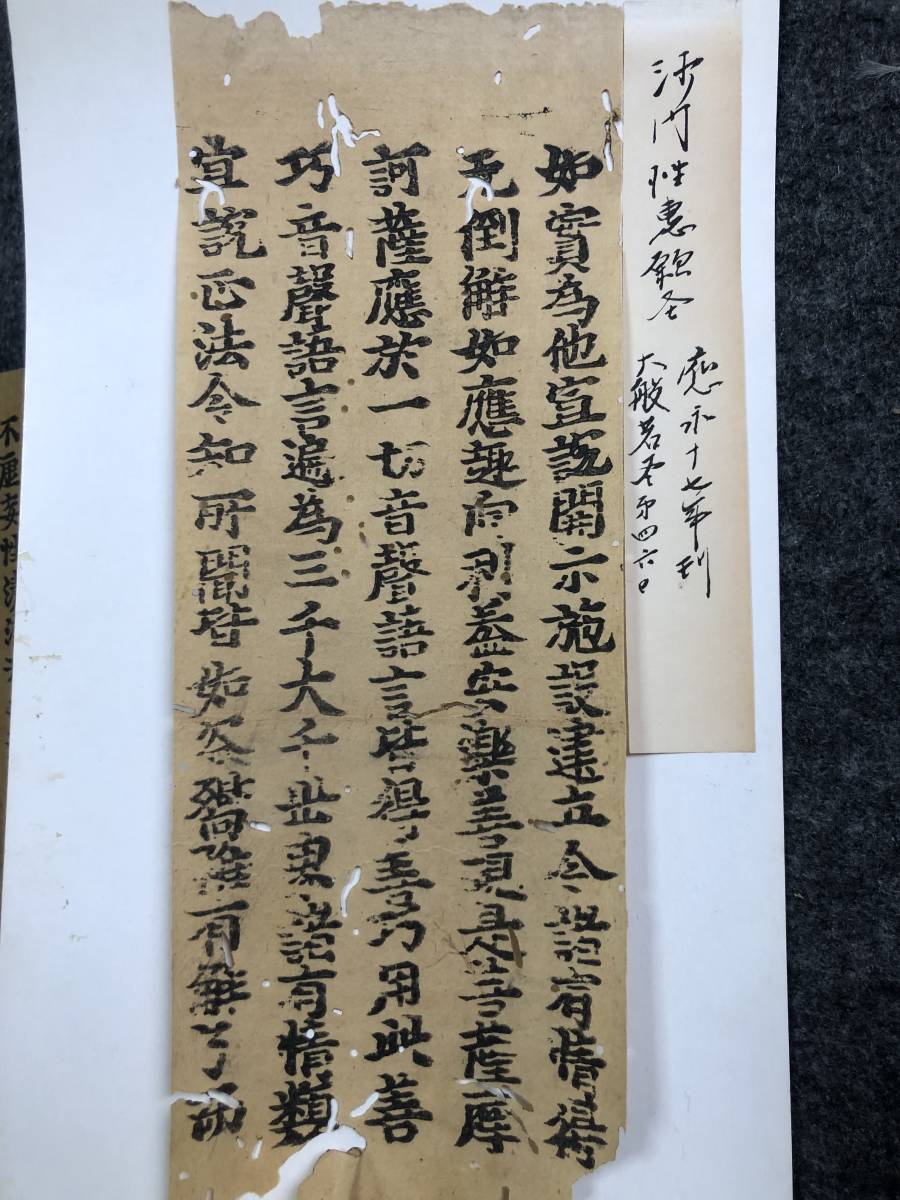 沙门性惠願圣
應永十七年刊
大般若圣第四六
如實為他宣說開示施設建立令諸有情得
无倒解如應趣向利益安樂善現是菩薩摩
訶薩應於一切音聲語言皆得善巧用此善
巧音聲語言遍為三千大千世界諸有情類
宣說正法令知所聞皆如谷響雖有解了而